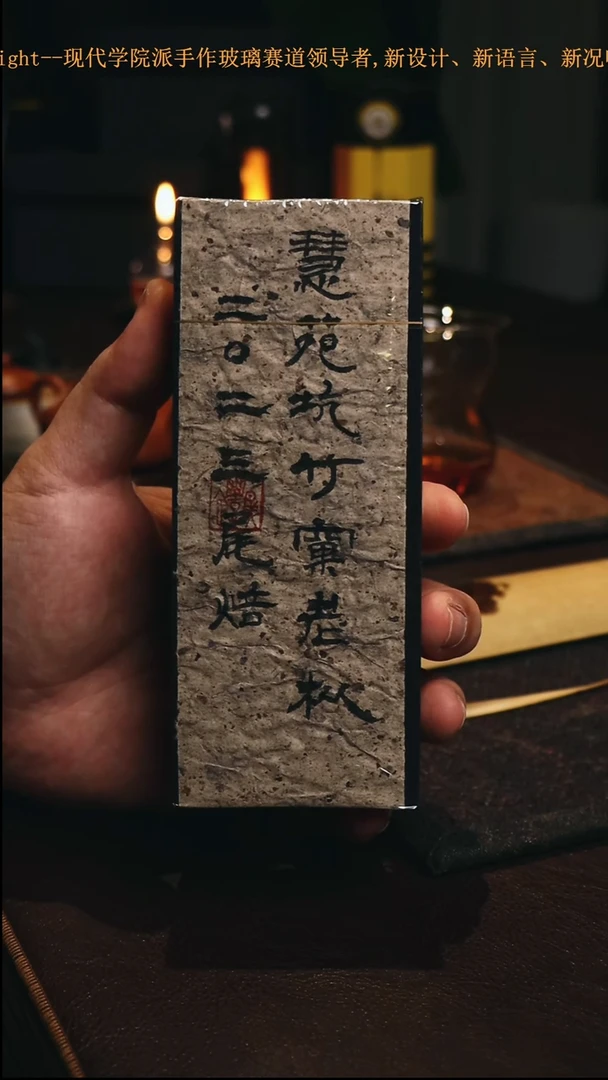 ight--现代学院派手作玻璃赛道领导者,新设计、新语言、新况
慧苑坑竹窠老枞
二〇二三尾焙